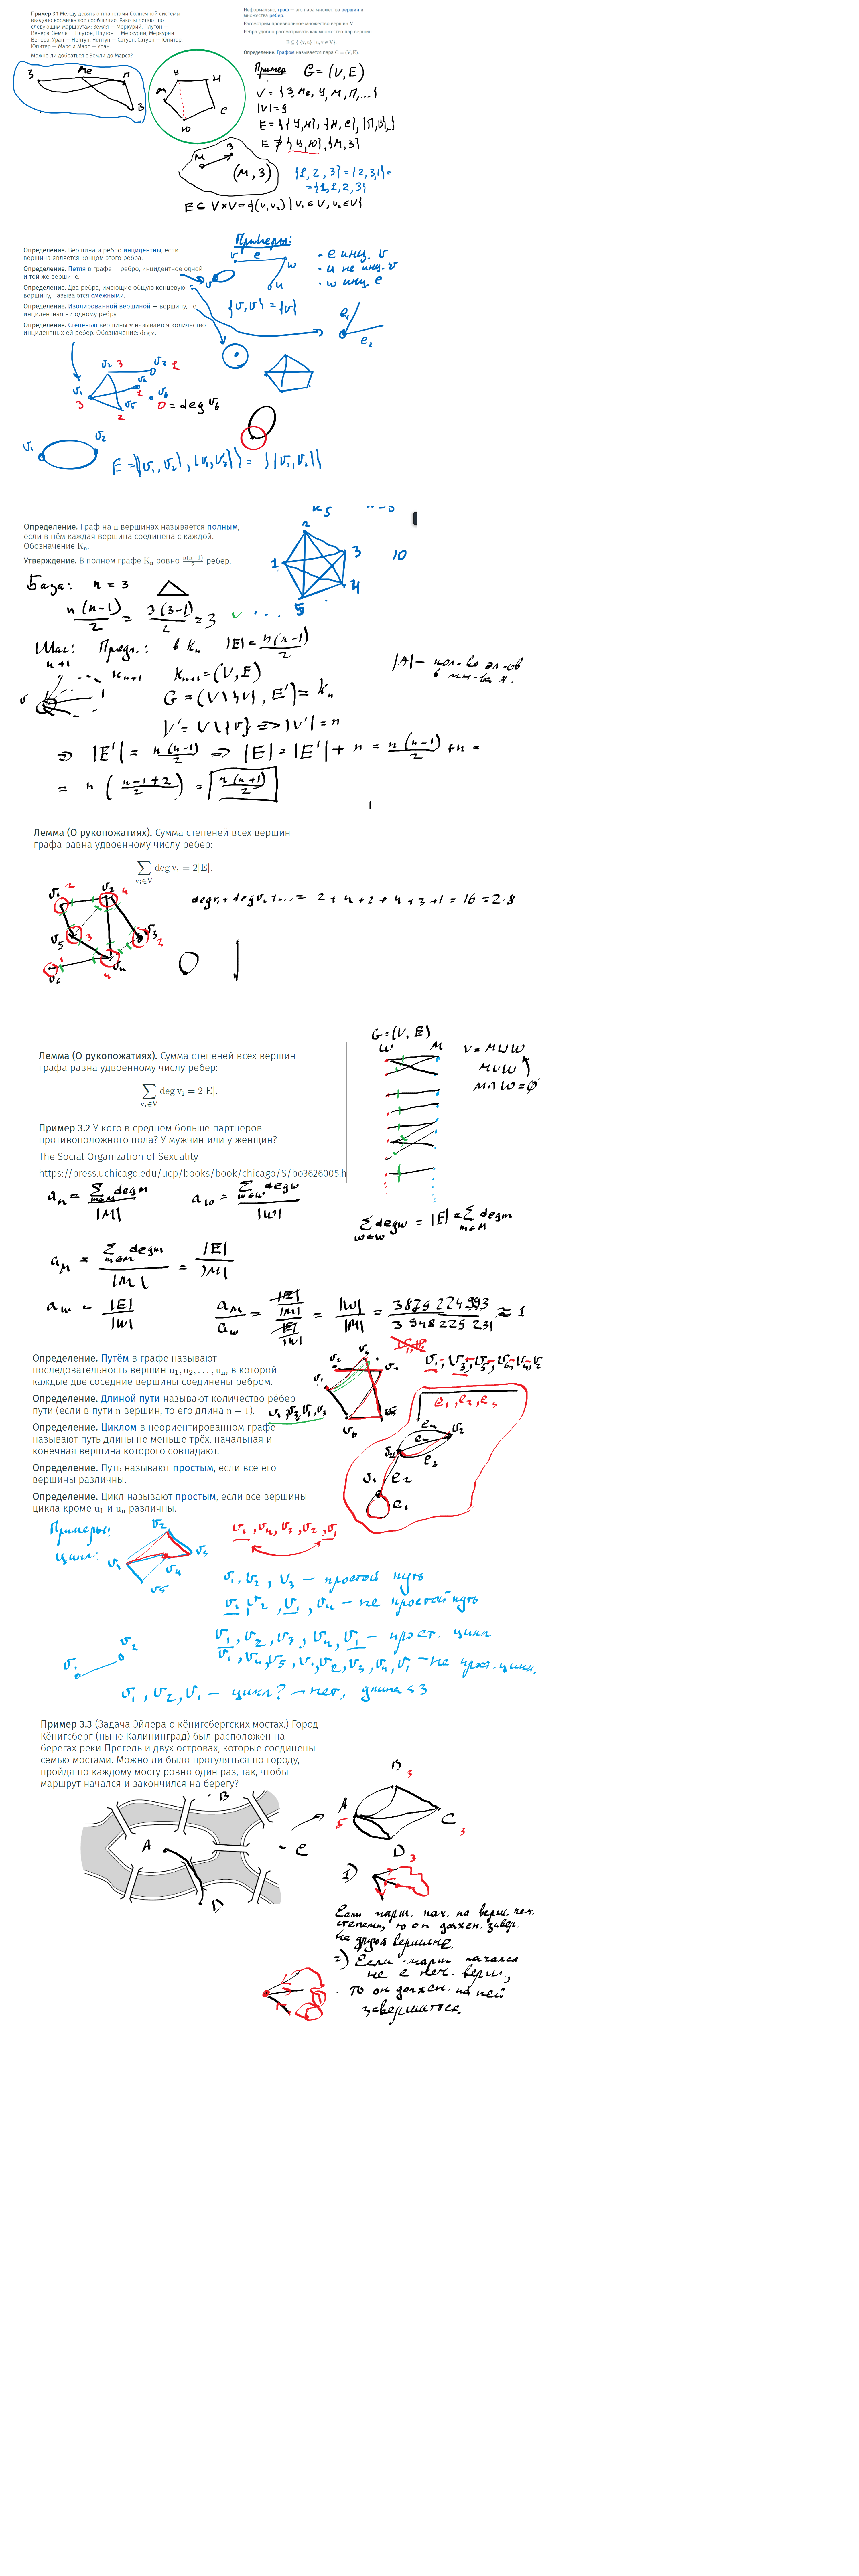 Пример 3.1 Между девятью планетами Солнечной системы
введено космическое сообщение. Ракеты летают по
следующим маршрутам: Земля — Меркурий, Плутон —
Венера, Земля — Плутон, Плутон — Меркурий, Меркурий —
Венера, Уран — Нептун, Нептун — Сатурн, Сатурн — Юпитер,
Юпитер — Марс и Марс — Уран.
Можно ли добраться с Земли до Марса?
Неформально, граф — это пара множества вершин и
множества ребер.
Рассмотрим произвольное множество вершин V.
Ребра удобно рассматривать как множество пар вершин
E ⊆ { {v, u} | v, u ∈ V}
Определение. Графом называется пара G = (V, E).
З Ме П В
У Н М С Ю
Пример G = (V, E)
V = {З, Ме, У, М, П, ...}
|V| = 9
E = {{У,Н}, {Н,С}, {П,В},}
E ∌ {У,Ю}, {М,З}
М З (М,З)
{1, 2, 3} = {2,3,1} =
= {1,1,2,3}
E ⊆ V×V = {(v₁,v₂) | v₁ ∈ V, v₂ ∈ V}
Определение. Вершина и ребро инцидентны, если
вершина является концом этого ребра.
Определение. Петля в графе — ребро, инцидентное одной
и той же вершине.
Определение. Два ребра, имеющие общую концевую
вершину, называются смежными.
Определение. Изолированной вершиной — вершину, не
инцидентная ни одному ребру.
Определение. Степенью вершины v называется количество
инцидентных ей ребер. Обозначение: deg v.
Примеры:
v e w u
- e инц. v
- u не инц. v
- w инц. e
{v,v} = {v}
e₁
e₂
v₂ 3 v₃ 1
v₁ 3 v₄ 1 v₅ 2 v₆
0 = deg v₆
v₁ v₂
E = {{v₁,v₂}, {v₁,v₂}} = {{v₁,v₂}}
Определение. Граф на n вершинах называется полным,
если в нём каждая вершина соединена с каждой.
Обозначение Kₙ.
Утверждение. В полном графе Kₙ ровно n(n−1)/2 ребер.
1 2 3 4 5
10
База: n = 3
n(n-1)/2 = 3(3-1)/2 = 3
Шаг: Предп.: в Kₙ |E| = n(n-1)/2
n+1 Kₙ₊₁ Kₙ₊₁ = (V, E)
v G = (V \ {v}, E') = Kₙ
V' = V \ {v} => |V'| = n
|A| — кол-во эл-ов
в мн-ва A.
=> |E'| = n(n-1)/2 => |E| = |E'| + n = n(n-1)/2 + n =
= n ( n-1+2 / 2 ) = n(n+1)/2
Лемма (О рукопожатиях). Сумма степеней всех вершин
графа равна удвоенному числу ребер:
∑ deg vᵢ = 2|E|.
vᵢ∈V
v₁ 2 v₂ 4 v₃ 2 v₅ 3 v₄ 4 v₆ 1
deg v₁ + deg v₂ + ... = 2 + 4 + 2 + 4 + 3 + 1 = 16 = 2·8
Лемма (О рукопожатиях). Сумма степеней всех вершин
графа равна удвоенному числу ребер:
∑ deg vᵢ = 2|E|.
vᵢ∈V
G = (V, E)
W M
V = M ⊔ W
M ∪ W
M ∩ W = ∅
Пример 3.2 У кого в среднем больше партнеров
противоположного пола? У мужчин или у женщин?
The Social Organization of Sexuality
https://press.uchicago.edu/ucp/books/book/chicago/S/bo3626005.h
aₘ = ∑ deg m / |M| a_w = ∑ deg w / |W|
∑ deg w = |E| = ∑ deg m
aₘ = ∑ deg m / |M| = |E| / |M|
a_w = |E| / |W|
aₘ / a_w = |E|/|M| / |E|/|W| = |W| / |M| = 3875 224 993 / 3 948 225 231 ≈ 1
Определение. Путём в графе называют
последовательность вершин u₁, u₂, . . . , uₙ, в которой
каждые две соседние вершины соединены ребром.
Определение. Длиной пути называют количество рёбер
пути (если в пути n вершин, то его длина n − 1).
Определение. Циклом в неориентированном графе
называют путь длины не меньше трёх, начальная и
конечная вершина которого совпадают.
Определение. Путь называют простым, если все его
вершины различны.
Определение. Цикл называют простым, если все вершины
цикла кроме u₁ и uₙ различны.
e₁, e₂, e₃
Примеры:
Цикл:
v₁, v₄, v₃, v₂, v₁
v₁, v₂, v₃ — простой путь
v₁, v₂, v₁, v₄ — не простой путь
v₁, v₂, v₃, v₄, v₁ — прост. цикл
v₁, v₄, v₅, v₁, v₂, v₃, v₄, v₁ — не прост. цикл.
v₁ v₂
v₁, v₂, v₁ — цикл? — нет, длина < 3
Пример 3.3 (Задача Эйлера о кёнигсбергских мостах.) Город
Кёнигсберг (ныне Калининград) был расположен на
берегах реки Прегель и двух островах, которые соединены
семью мостами. Можно ли было прогуляться по городу,
пройдя по каждому мосту ровно один раз, так, чтобы
маршрут начался и закончился на берегу?
B A C D
B 3 A 5 C 3 D 3
1)
Если марш. нач. на верш. неч.
степени, то он должен. завер.
на другой вершине.
2) Если марш. начался
не с неч. верш.,
то он должен. на ней
завершиться.